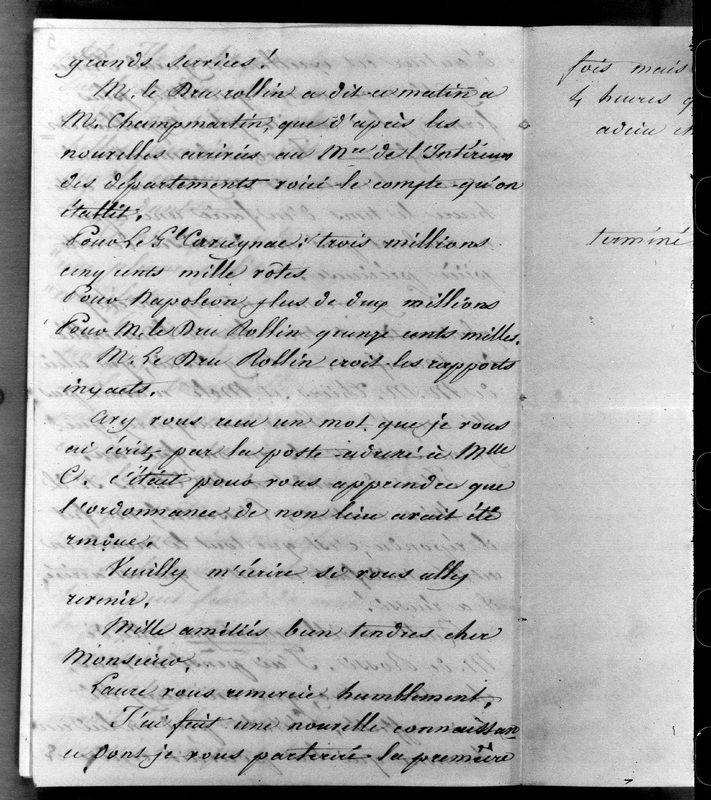 grands services!
M. le Dru rollin a dit ce matin a
M. Champmartin, que d'après les
nouvelles arrivées au Mre de l'Intérieur
des départements voici le compte qu'on
établit.
Pour Le Gl Cavaignac: trois millions
cinq cents mille votes
Pour Napoléon plus de deux millions
Pour M. le Dru Rollin quinze cents milles.
M. Le Dru Rollin croit les rapports
inexacts.
Avez vous reçu un mot que je vous
ai écrit, par la poste adressé à Mlle
C. c'était pour vous apprendre que
l'ordonnance de non lieu avait été
rendue.
Veuillez m'écrire si vous allez
revenir.
Mille amitiés bien tendres cher
Monsieur,
Laure vous remercie humblement,
J'ai fait une nouvelle connaissan
ce dont je vous parlerai la première
fois mais
4 heures
adieu
terminé